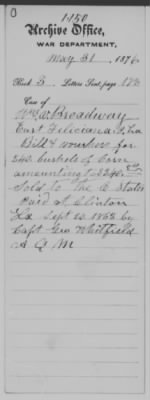 1450
Archive Office,
WAR DEPARTMENT,
May 31, 1876.
Book 3. Letters Sent, page 178
Case of
Wm W. Broadway
East Feliciana P. La
Bill & vouchers for
248 bushels of Corn
amounting to $248
Sold to the C. States
Paid at Clinton
La Sept 20 1863 by
Capt Geo Whitfield
A Q M